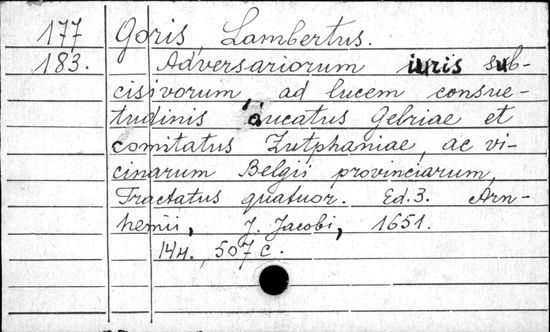 177 Goris, Lambertus.
183. Adversariorum iuris sub-
cisivorum, ad lucem consue-
tudinis ducatus Gebriae et
comitatus Zutphaniae, ac vi-
cinarum Belgii provinciarum,
Tractatus quatuor. Ed. 3. Arn-
hemii, J. Jacobi, 1651.
14 н., 507 с.